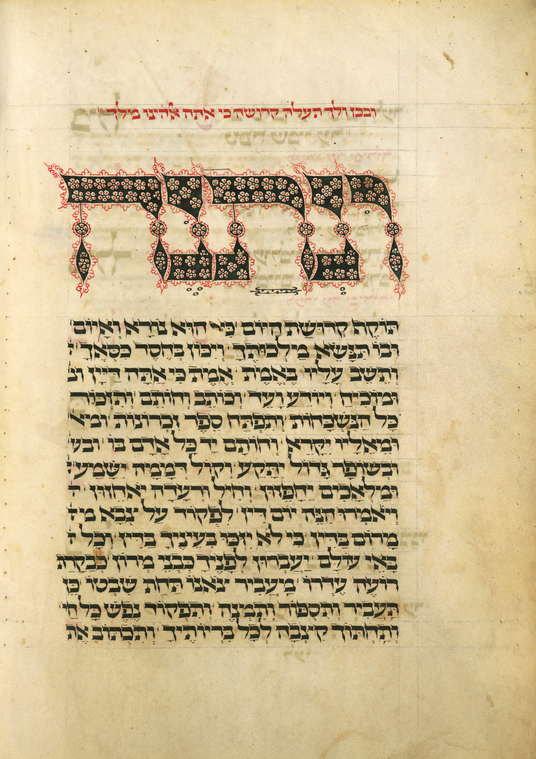 ובכן ולך תעלה קדושה כי אתה אלהינו מלך
ונתנה
תוקף קדושת היום כי הוא נורא ואיום
ובו תנשא מלכותך ויכון בחסד כסאך ו
ותשב עליו באמת אמת כי אתה דיין ומ
ומוכיח ויודע ועד וכותב וחותם ותזכור
כל הנשכחות ותפתח ספר זכרונות ומא
ומאליו יקרא וחותם יד כל אדם בו ובש
ובשופר גדול יתקע וקול דממה ישמע
ומלאכים יחפזון וחיל ורעדה יאחזון ו
ויאמרו הנה יום דין לפקוד על צבא מר
מרום בדין כי לא יזכו בעיניך בדין וכל
באי עולם יעברון לפניך כבני מרון כבקרת
רועה עדרו מעביר צאנו תחת שבטו כן
תעביר ותספור ותמנה ותפקוד נפש כל חי
ותחתוך קיצבה לכל בריותיך ותכתוב את